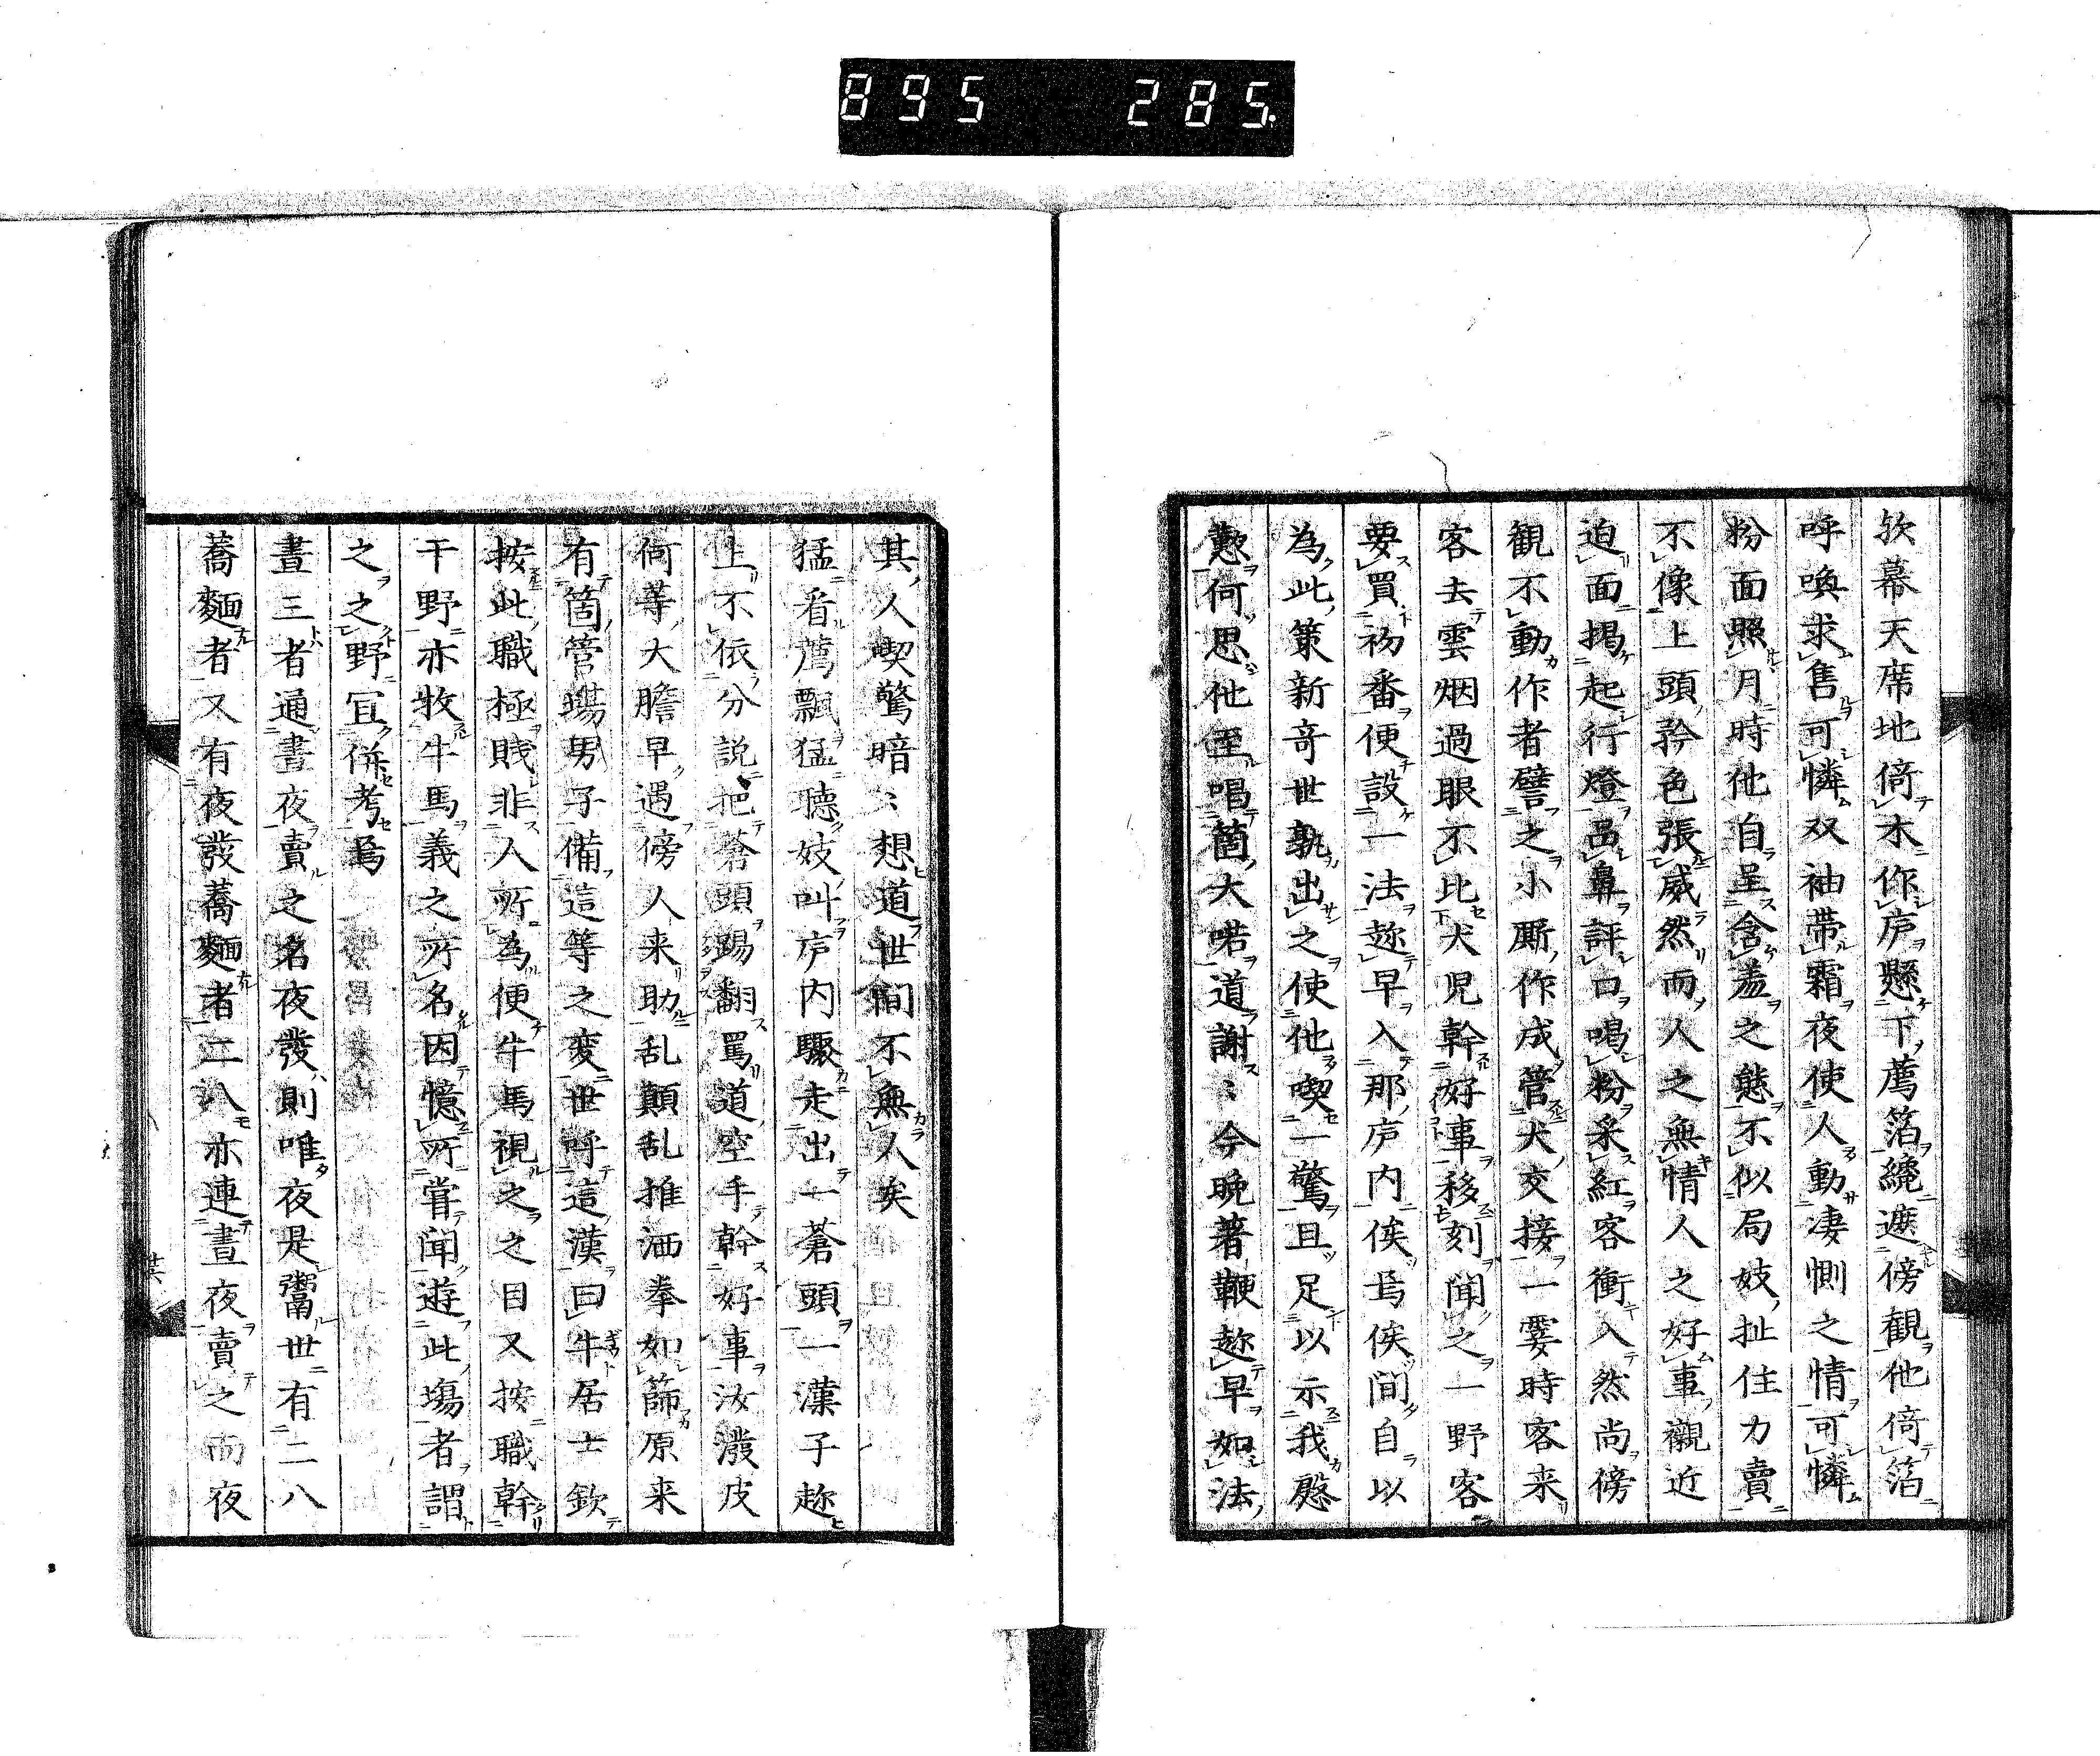 895 285
欤幕天席地倚木作庐懸下薦箔纔遮傍觀他倚箔
呼喚求售可憐双袖帶霜夜使人動凄惻之情可憐
粉面照月時他自呈含羞之態不似局妓扯住力賣
不像上頭矜色張威然而人之無情人之好事襯近
迫面揭起行燈品鼻評口喝粉采紅客衝入然尚傍
觀不動作者譬之小厮作成管犬交接一霎時客来
客去雲烟過眼不比犬児幹好事移刻聞之一野客
要買初番便設一法趂早入那庐内俟焉俟間自以
為此策新奇世孰出之使他喫一驚且足以示我慇
懃何思他𦤶唱箇大喏道謝〻今晚著鞭趂早如法
其人喫驚暗〻想道世間不無人矣
猛看薦飄猛聴妓叫庐内驟走出一蒼頭一漢子趂
上不依分說把蒼頭踢翻罵道空手幹好事汝潑皮
何等大膽早遇傍人来助乱顛乱推洒拳如篩原来
有箇管場男子備這等之変世呼這漢曰牛居士欽
按此職極賎非人所為便牛馬視之之目又按職幹
干野亦牧牛馬義之所名因憶所嘗聞遊此場者謂
之之野冝併考焉
晝三者通晝夜賣之名夜發則唯夜是鬻世有二八
蕎麵者又有夜發蕎麵者二八亦連晝夜賣之而夜